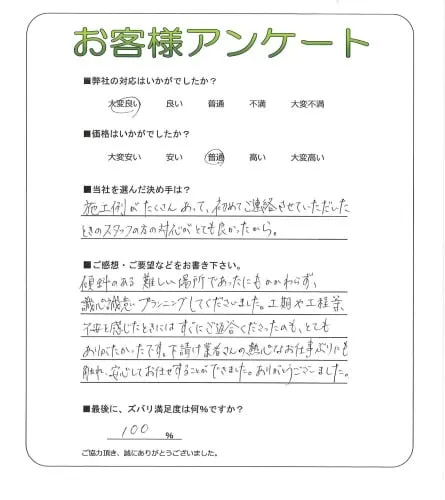 お客様アンケート
■弊社の対応はいかがでしたか？
大変良い 良い 普通 不満 大変不満
■価格はいかがでしたか？
大変安い 安い 普通 高い 大変高い
■当社を選んだ決め手は？
施工例がたくさんあって、初めてご連絡させていただいた
ときのスタッフの方の対応がとても良かったから。
■ご感想・ご要望などをお書き下さい。
傾斜のある難しい場所であったにもかかわらず、
誠心誠意プランニングしてくださいました。工期や工程等、
不安を感じたときにはすぐにご返答くださったのも、とても
ありがたかったです。下請け業者さんの熱心なお仕事ぶりにも
触れ、安心してお任せすることができました。ありがとうございました。
■最後に、ズバリ満足度は何％ですか？
100 ％
ご協力頂き、誠にありがとうございました。